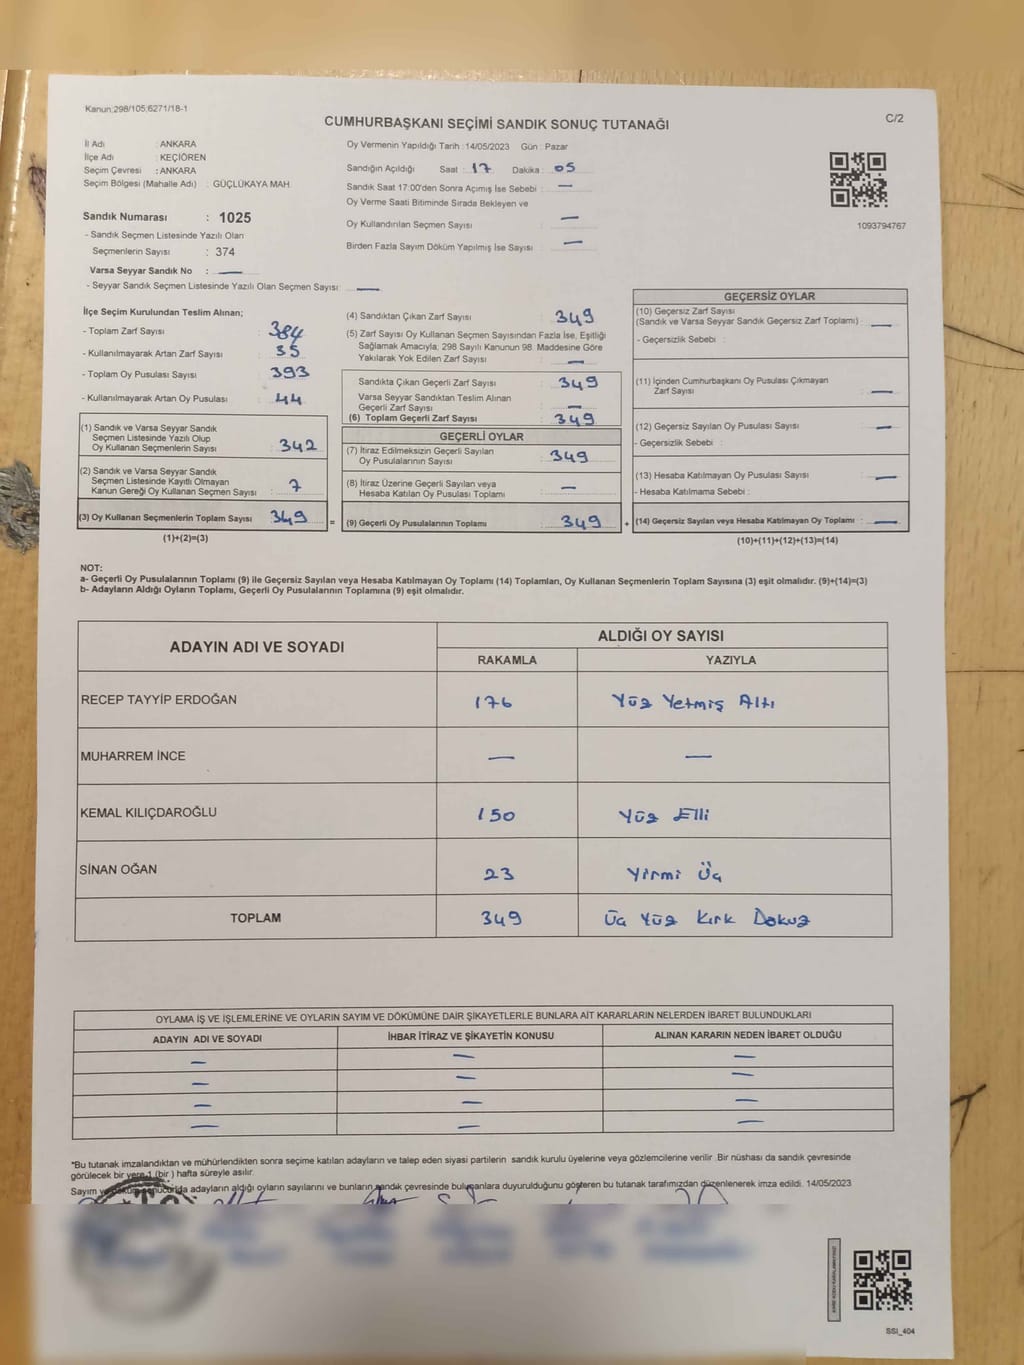 Kanun:298/105;6271/18-1
C/2
CUMHURBAŞKANI SEÇİMİ SANDIK SONUÇ TUTANAĞI
İl Adı : ANKARA
İlçe Adı : KEÇİÖREN
Seçim Çevresi : ANKARA
Seçim Bölgesi (Mahalle Adı) : GÜÇLÜKAYA MAH.
Sandık Numarası : 1025
- Sandık Seçmen Listesinde Yazılı Olan
Seçmenlerin Sayısı : 374
Varsa Seyyar Sandık No : —
- Seyyar Sandık Seçmen Listesinde Yazılı Olan Seçmen Sayısı: —
Oy Vermenin Yapıldığı Tarih : 14/05/2023 Gün : Pazar
Sandığın Açıldığı Saat : 17 Dakika : 05
Sandık Saat 17:00'den Sonra Açımış İse Sebebi : —
Oy Verme Saati Bitiminde Sırada Bekleyen ve
Oy Kullandırılan Seçmen Sayısı : —
Birden Fazla Sayım Döküm Yapılmış İse Sayısı : —
1093794767
İlçe Seçim Kurulundan Teslim Alınan;
- Toplam Zarf Sayısı : 384
- Kullanılmayarak Artan Zarf Sayısı : 35
- Toplam Oy Pusulası Sayısı : 393
- Kullanılmayarak Artan Oy Pusulası : 44
(1) Sandık ve Varsa Seyyar Sandık
Seçmen Listesinde Yazılı Olup
Oy Kullanan Seçmenlerin Sayısı : 342
(2) Sandık ve Varsa Seyyar Sandık
Seçmen Listesinde Kayıtlı Olmayan
Kanun Gereği Oy Kullanan Seçmen Sayısı : 7
(3) Oy Kullanan Seçmenlerin Toplam Sayısı : 349
(1)+(2)=(3)
=
(4) Sandıktan Çıkan Zarf Sayısı : 349
(5) Zarf Sayısı Oy Kullanan Seçmen Sayısından Fazla İse, Eşitliği
Sağlamak Amacıyla; 298 Sayılı Kanunun 98. Maddesine Göre
Yakılarak Yok Edilen Zarf Sayısı : —
Sandıkta Çıkan Geçerli Zarf Sayısı : 349
Varsa Seyyar Sandıktan Teslim Alınan
Geçerli Zarf Sayısı : —
(6) Toplam Geçerli Zarf Sayısı : 349
GEÇERLİ OYLAR
(7) İtiraz Edilmeksizin Geçerli Sayılan
Oy Pusulalarının Sayısı : 349
(8) İtiraz Üzerine Geçerli Sayılan veya
Hesaba Katılan Oy Pusulası Toplamı : —
(9) Geçerli Oy Pusulalarının Toplamı : 349
+
GEÇERSİZ OYLAR
(10) Geçersiz Zarf Sayısı
(Sandık ve Varsa Seyyar Sandık Geçersiz Zarf Toplamı) : —
- Geçersizlik Sebebi :
(11) İçinden Cumhurbaşkanı Oy Pusulası Çıkmayan
Zarf Sayısı : —
(12) Geçersiz Sayılan Oy Pusulası Sayısı : —
- Geçersizlik Sebebi :
(13) Hesaba Katılmayan Oy Pusulası Sayısı : —
- Hesaba Katılmama Sebebi :
(14) Geçersiz Sayılan veya Hesaba Katılmayan Oy Toplamı : —
(10)+(11)+(12)+(13)=(14)
NOT:
a- Geçerli Oy Pusulalarının Toplamı (9) ile Geçersiz Sayılan veya Hesaba Katılmayan Oy Toplamı (14) Toplamları, Oy Kullanan Seçmenlerin Toplam Sayısına (3) eşit olmalıdır. (9)+(14)=(3)
b- Adayların Aldığı Oyların Toplamı, Geçerli Oy Pusulalarının Toplamına (9) eşit olmalıdır.
ADAYIN ADI VE SOYADI
ALDIĞI OY SAYISI
RAKAMLA YAZIYLA
RECEP TAYYİP ERDOĞAN 176 Yüz Yetmiş Altı
MUHARREM İNCE — —
KEMAL KILIÇDAROĞLU 150 Yüz Elli
SİNAN OĞAN 23 Yirmi Üç
TOPLAM 349 Üç Yüz Kırk Dokuz
OYLAMA İŞ VE İŞLEMLERİNE VE OYLARIN SAYIM VE DÖKÜMÜNE DAİR ŞİKAYETLERLE BUNLARA AİT KARARLARIN NELERDEN İBARET BULUNDUKLARI
ADAYIN ADI VE SOYADI İHBAR İTİRAZ VE ŞİKAYETİN KONUSU ALINAN KARARIN NEDEN İBARET OLDUĞU
— — —
— — —
— — —
— — —
*Bu tutanak imzalandıktan ve mühürlendikten sonra seçime katılan adayların ve talep eden siyasi partilerin sandık kurulu üyelerine veya gözlemcilerine verilir. Bir nüshası da sandık çevresinde
görülecek bir yere 1 (bir ) hafta süreyle asılır.
Sayım ve döküm sonucunda adayların aldığı oyların sayılarını ve bunların sandık çevresinde bulunanlara duyurulduğunu gösteren bu tutanak tarafımızdan düzenlenerek imza edildi. 14/05/2023
SSI_404